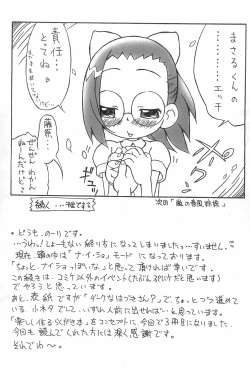 まさるくんの
………エッチ
責任…
とってね♡
藤原…
ぜんぜんわかん
ねーんだけど？
続く…ってなに？
次回「嵐の春風姉妹」
・どうも、のーりです。
…うわっ！しょーもない終り方になってしまいました…すいません。
現在、頭の中は「ナ・イ・ショ」モードになっております。
「ちょっと、ナイショっぽいな」と思って頂ければ幸いです。
この続きは、コミケ以外のイベント(たぶんぷにけだと思います)
でやろうと思います。
あと、表紙ですが「ダークなはづきさん？」で、ちょっとづつ進めている
小ネタでして…いずれ人前に出せれば…と思っています。
「楽しく作るらくがき本」をコンセプトに、今回で3冊目になりました、
今回も読んでくれた方々には深く感謝です。
それでわ〜